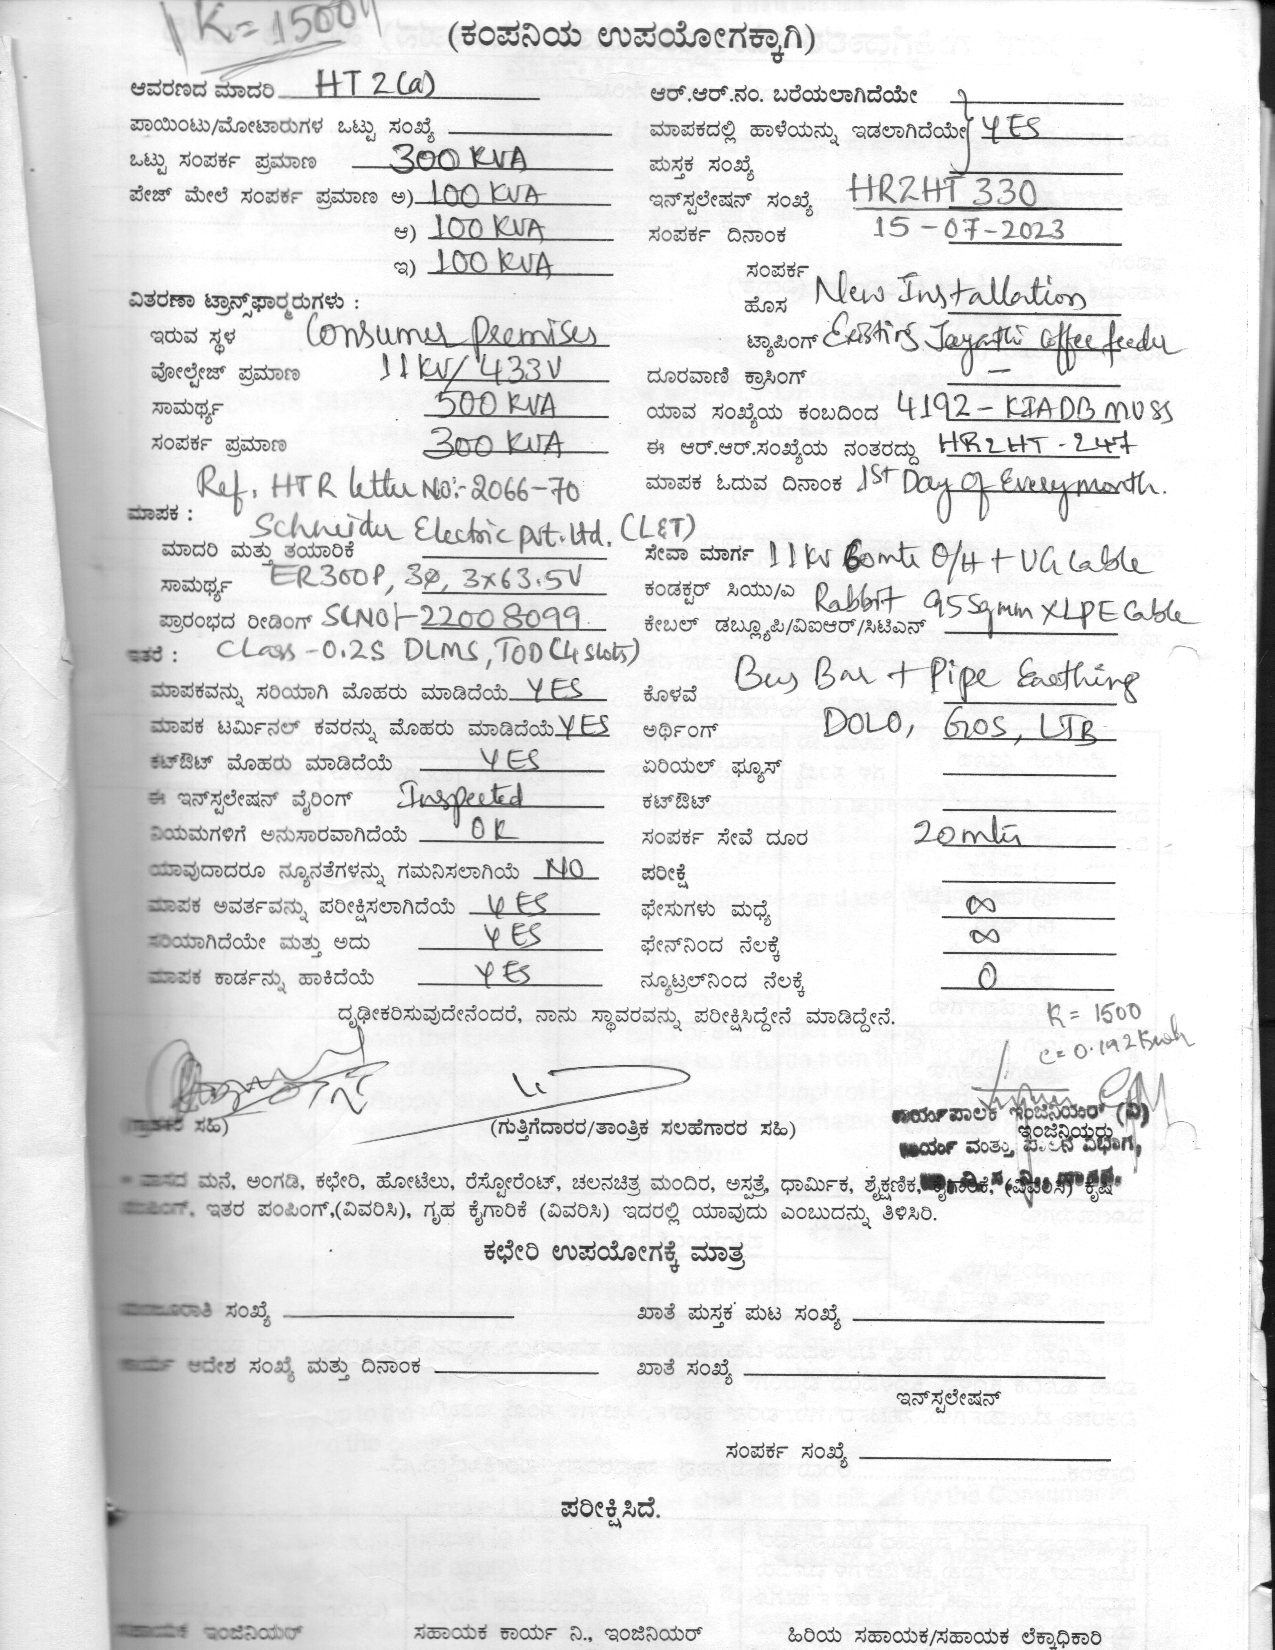 K = 1500
(ಕಂಪನಿಯ ಉಪಯೋಗಕ್ಕಾಗಿ)
ಆವರಣದ ಮಾದರಿ HT 2(a)
ಪಾಯಿಂಟು/ಮೋಟಾರುಗಳ ಒಟ್ಟು ಸಂಖ್ಯೆ
ಒಟ್ಟು ಸಂಪರ್ಕ ಪ್ರಮಾಣ 300 KVA
ಪೇಜ್ ಮೇಲೆ ಸಂಪರ್ಕ ಪ್ರಮಾಣ ಅ) 100 KVA
ಆ) 100 KVA
ಇ) 100 KVA
ವಿತರಣಾ ಟ್ರಾನ್ಸ್‌ಫಾರ್ಮರುಗಳು :
ಇರುವ ಸ್ಥಳ Consumer Premises
ವೋಲ್ಟೇಜ್ ಪ್ರಮಾಣ 11KV/433V
ಸಾಮರ್ಥ್ಯ 500 KVA
ಸಂಪರ್ಕ ಪ್ರಮಾಣ 300 KVA
Ref. HTR letter No:- 2066-70
ಮಾಪಕ :
Schneider Electric Pvt. Ltd. (L&T)
ಮಾದರಿ ಮತ್ತು ತಯಾರಿಕೆ
ಸಾಮರ್ಥ್ಯ ER300P, 3Ø, 3x63.5V
ಪ್ರಾರಂಭದ ರೀಡಿಂಗ್ SLNO:- 22008099
ಇತರೆ : Class - 0.2S DLMS, TOD (4 slots)
ಮಾಪಕವನ್ನು ಸರಿಯಾಗಿ ಮೊಹರು ಮಾಡಿದೆಯೆ YES
ಮಾಪಕ ಟರ್ಮಿನಲ್ ಕವರನ್ನು ಮೊಹರು ಮಾಡಿದೆಯೆ YES
ಕಟ್‌ಔಟ್ ಮೊಹರು ಮಾಡಿದೆಯೆ YES
ಈ ಇನ್‌ಸ್ಟಲೇಷನ್ ವೈರಿಂಗ್ Inspected
ನಿಯಮಗಳಿಗೆ ಅನುಸಾರವಾಗಿದೆಯೆ OK
ಯಾವುದಾದರೂ ನ್ಯೂನತೆಗಳನ್ನು ಗಮನಿಸಲಾಗಿಯೆ NO
ಮಾಪಕ ಅವರ್ತವನ್ನು ಪರೀಕ್ಷಿಸಲಾಗಿದೆಯೆ YES
ಸರಿಯಾಗಿದೆಯೇ ಮತ್ತು ಅದು YES
ಮಾಪಕ ಕಾರ್ಡನ್ನು ಹಾಕಿದೆಯೆ YES
ಆರ್.ಆರ್.ನಂ. ಬರೆಯಲಾಗಿದೆಯೇ
ಮಾಪಕದಲ್ಲಿ ಹಾಳೆಯನ್ನು ಇಡಲಾಗಿದೆಯೇ YES
ಪುಸ್ತಕ ಸಂಖ್ಯೆ
ಇನ್‌ಸ್ಟಲೇಷನ್ ಸಂಖ್ಯೆ HR2HT 330
ಸಂಪರ್ಕ ದಿನಾಂಕ 15-07-2023
ಸಂಪರ್ಕ
ಹೊಸ New Installation
ಟ್ಯಾಪಿಂಗ್ Existing Jayanthi Coffee feeder
ದೂರವಾಣಿ ಕ್ರಾಸಿಂಗ್ —
ಯಾವ ಸಂಖ್ಯೆಯ ಕಂಬದಿಂದ 4192 - KIADB MUSS
ಈ ಆರ್.ಆರ್.ಸಂಖ್ಯೆಯ ನಂತರದ್ದು HR2HT - 247
ಮಾಪಕ ಓದುವ ದಿನಾಂಕ 1st Day of Every month.
ಸೇವಾ ಮಾರ್ಗ 11KV 60mtr O/H + UG Cable
ಕಂಡಕ್ಟರ್ ಸಿಯು/ಎ Rabbit 95 Sqmm XLPE Cable
ಕೇಬಲ್ ಡಬ್ಲ್ಯೂಪಿ/ವಿಐಆರ್/ಸಿಟಿಎನ್
ಕೊಳವೆ Bus Bar + Pipe Earthing
ಅರ್ಥಿಂಗ್ DOLO, GOS, LTB
ಏರಿಯಲ್ ಫ್ಯೂಸ್
ಕಟ್‌ಔಟ್
ಸಂಪರ್ಕ ಸೇವೆ ದೂರ 20 mtr
ಪರೀಕ್ಷೆ
ಫೇಸುಗಳು ಮಧ್ಯೆ ∞
ಫೇಸ್‌ನಿಂದ ನೆಲಕ್ಕೆ ∞
ನ್ಯೂಟ್ರಲ್‌ನಿಂದ ನೆಲಕ್ಕೆ 0
ದೃಢೀಕರಿಸುವುದೇನೆಂದರೆ, ನಾನು ಸ್ಥಾವರವನ್ನು ಪರೀಕ್ಷಿಸಿದ್ದೇನೆ ಮಾಡಿದ್ದೇನೆ.
K = 1500
e = 0.192 Kwh
ಸಹಿ)
(ಗುತ್ತಿಗೆದಾರರ/ತಾಂತ್ರಿಕ ಸಲಹೆಗಾರರ ಸಹಿ)
ಕಾರ್ಯಪಾಲಕ ಇಂಜಿನಿಯರ್ (ವಿ)
ಇಂಜಿನಿಯರು
ಕಾರ್ಯ ಮತ್ತು ಪಾಲನೆ ವಿಭಾಗ,
ಮನೆ, ಅಂಗಡಿ, ಕಛೇರಿ, ಹೋಟೆಲು, ರೆಸ್ಟೋರೆಂಟ್, ಚಲನಚಿತ್ರ ಮಂದಿರ, ಅಸ್ಪತ್ರೆ, ಧಾರ್ಮಿಕ, ಶೈಕ್ಷಣಿಕ, ಕೈಗಾರಿಕೆ, (ವಿವರಿಸಿ) ಕೃಷಿ
ಪಂಪಿಂಗ್, ಇತರ ಪಂಪಿಂಗ್,(ವಿವರಿಸಿ), ಗೃಹ ಕೈಗಾರಿಕೆ (ವಿವರಿಸಿ) ಇದರಲ್ಲಿ ಯಾವುದು ಎಂಬುದನ್ನು ತಿಳಿಸಿರಿ.
ಕಛೇರಿ ಉಪಯೋಗಕ್ಕೆ ಮಾತ್ರ
ಮಂಜೂರಾತಿ ಸಂಖ್ಯೆ
ಖಾತೆ ಪುಸ್ತಕ ಪುಟ ಸಂಖ್ಯೆ
ಕಾರ್ಯ ಆದೇಶ ಸಂಖ್ಯೆ ಮತ್ತು ದಿನಾಂಕ
ಖಾತೆ ಸಂಖ್ಯೆ
ಇನ್‌ಸ್ಟಲೇಷನ್
ಸಂಪರ್ಕ ಸಂಖ್ಯೆ
ಪರೀಕ್ಷಿಸಿದೆ.
ಸಹಾಯಕ ಇಂಜಿನಿಯರ್
ಸಹಾಯಕ ಕಾರ್ಯ ನಿ., ಇಂಜಿನಿಯರ್
ಹಿರಿಯ ಸಹಾಯಕ/ಸಹಾಯಕ ಲೆಕ್ಕಾಧಿಕಾರಿ